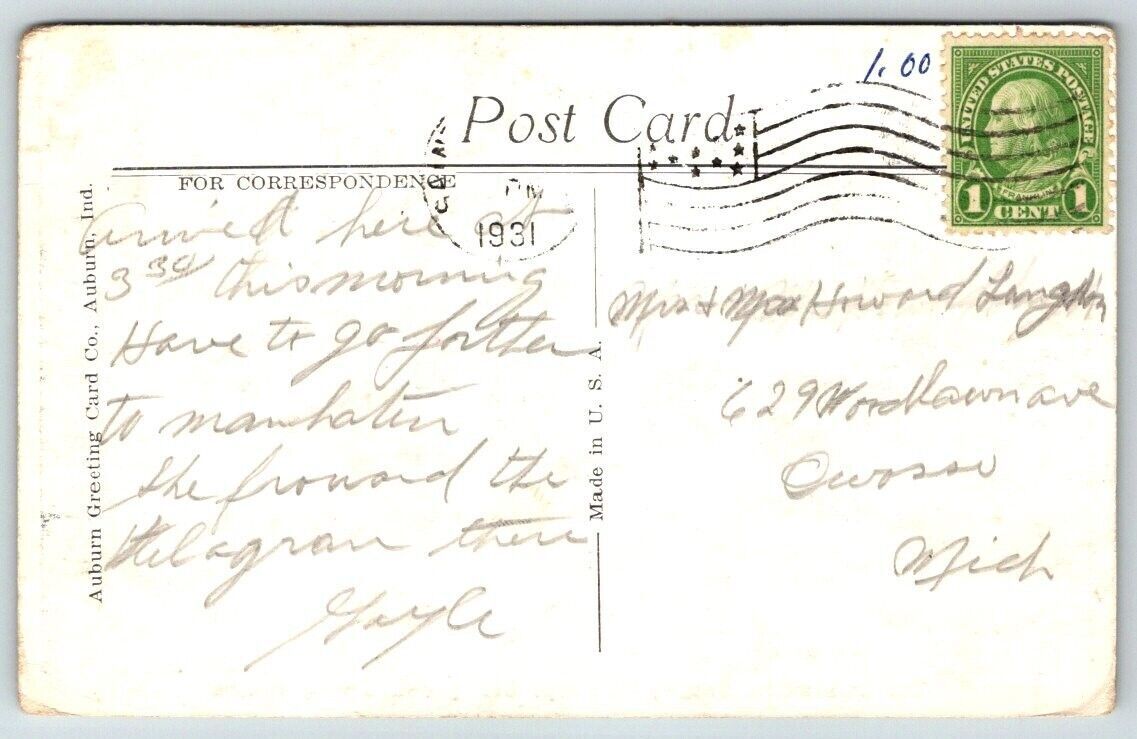 1.00
Post Card
UNITED STATES POSTAGE
FRANKLIN
1 CENT 1
PM
1931
FOR CORRESPONDENCE
Auburn Greeting Card Co., Auburn, Ind.
Made in U. S. A.
Arrived here at
3 30 this morning
Have to go forther
to manhaten
she froward the
telagram there
Gayle
Mrs + Mr Howard Langdon
629 Woodlawn ave
Owosso
Mich